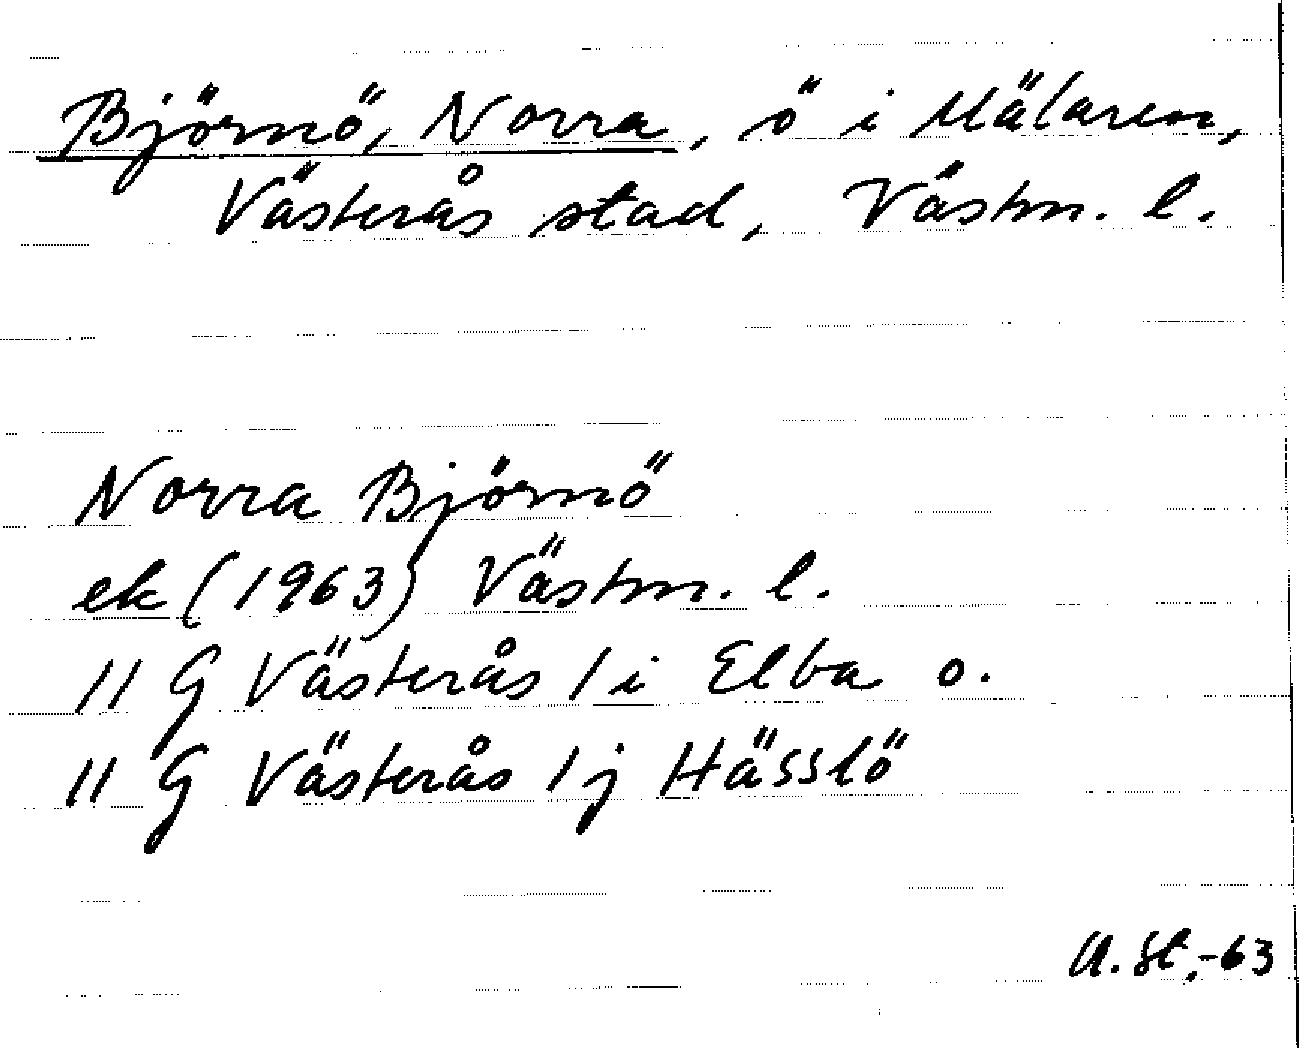 Björnö, Norra, ö i Mälaren,
Västerås stad, Västm. l.
Norra Björnö
ek (1963) Västm. l.
11 G Västerås 1 i Elba o.
11 G Västerås 1 j Hässlö
A. St.-63